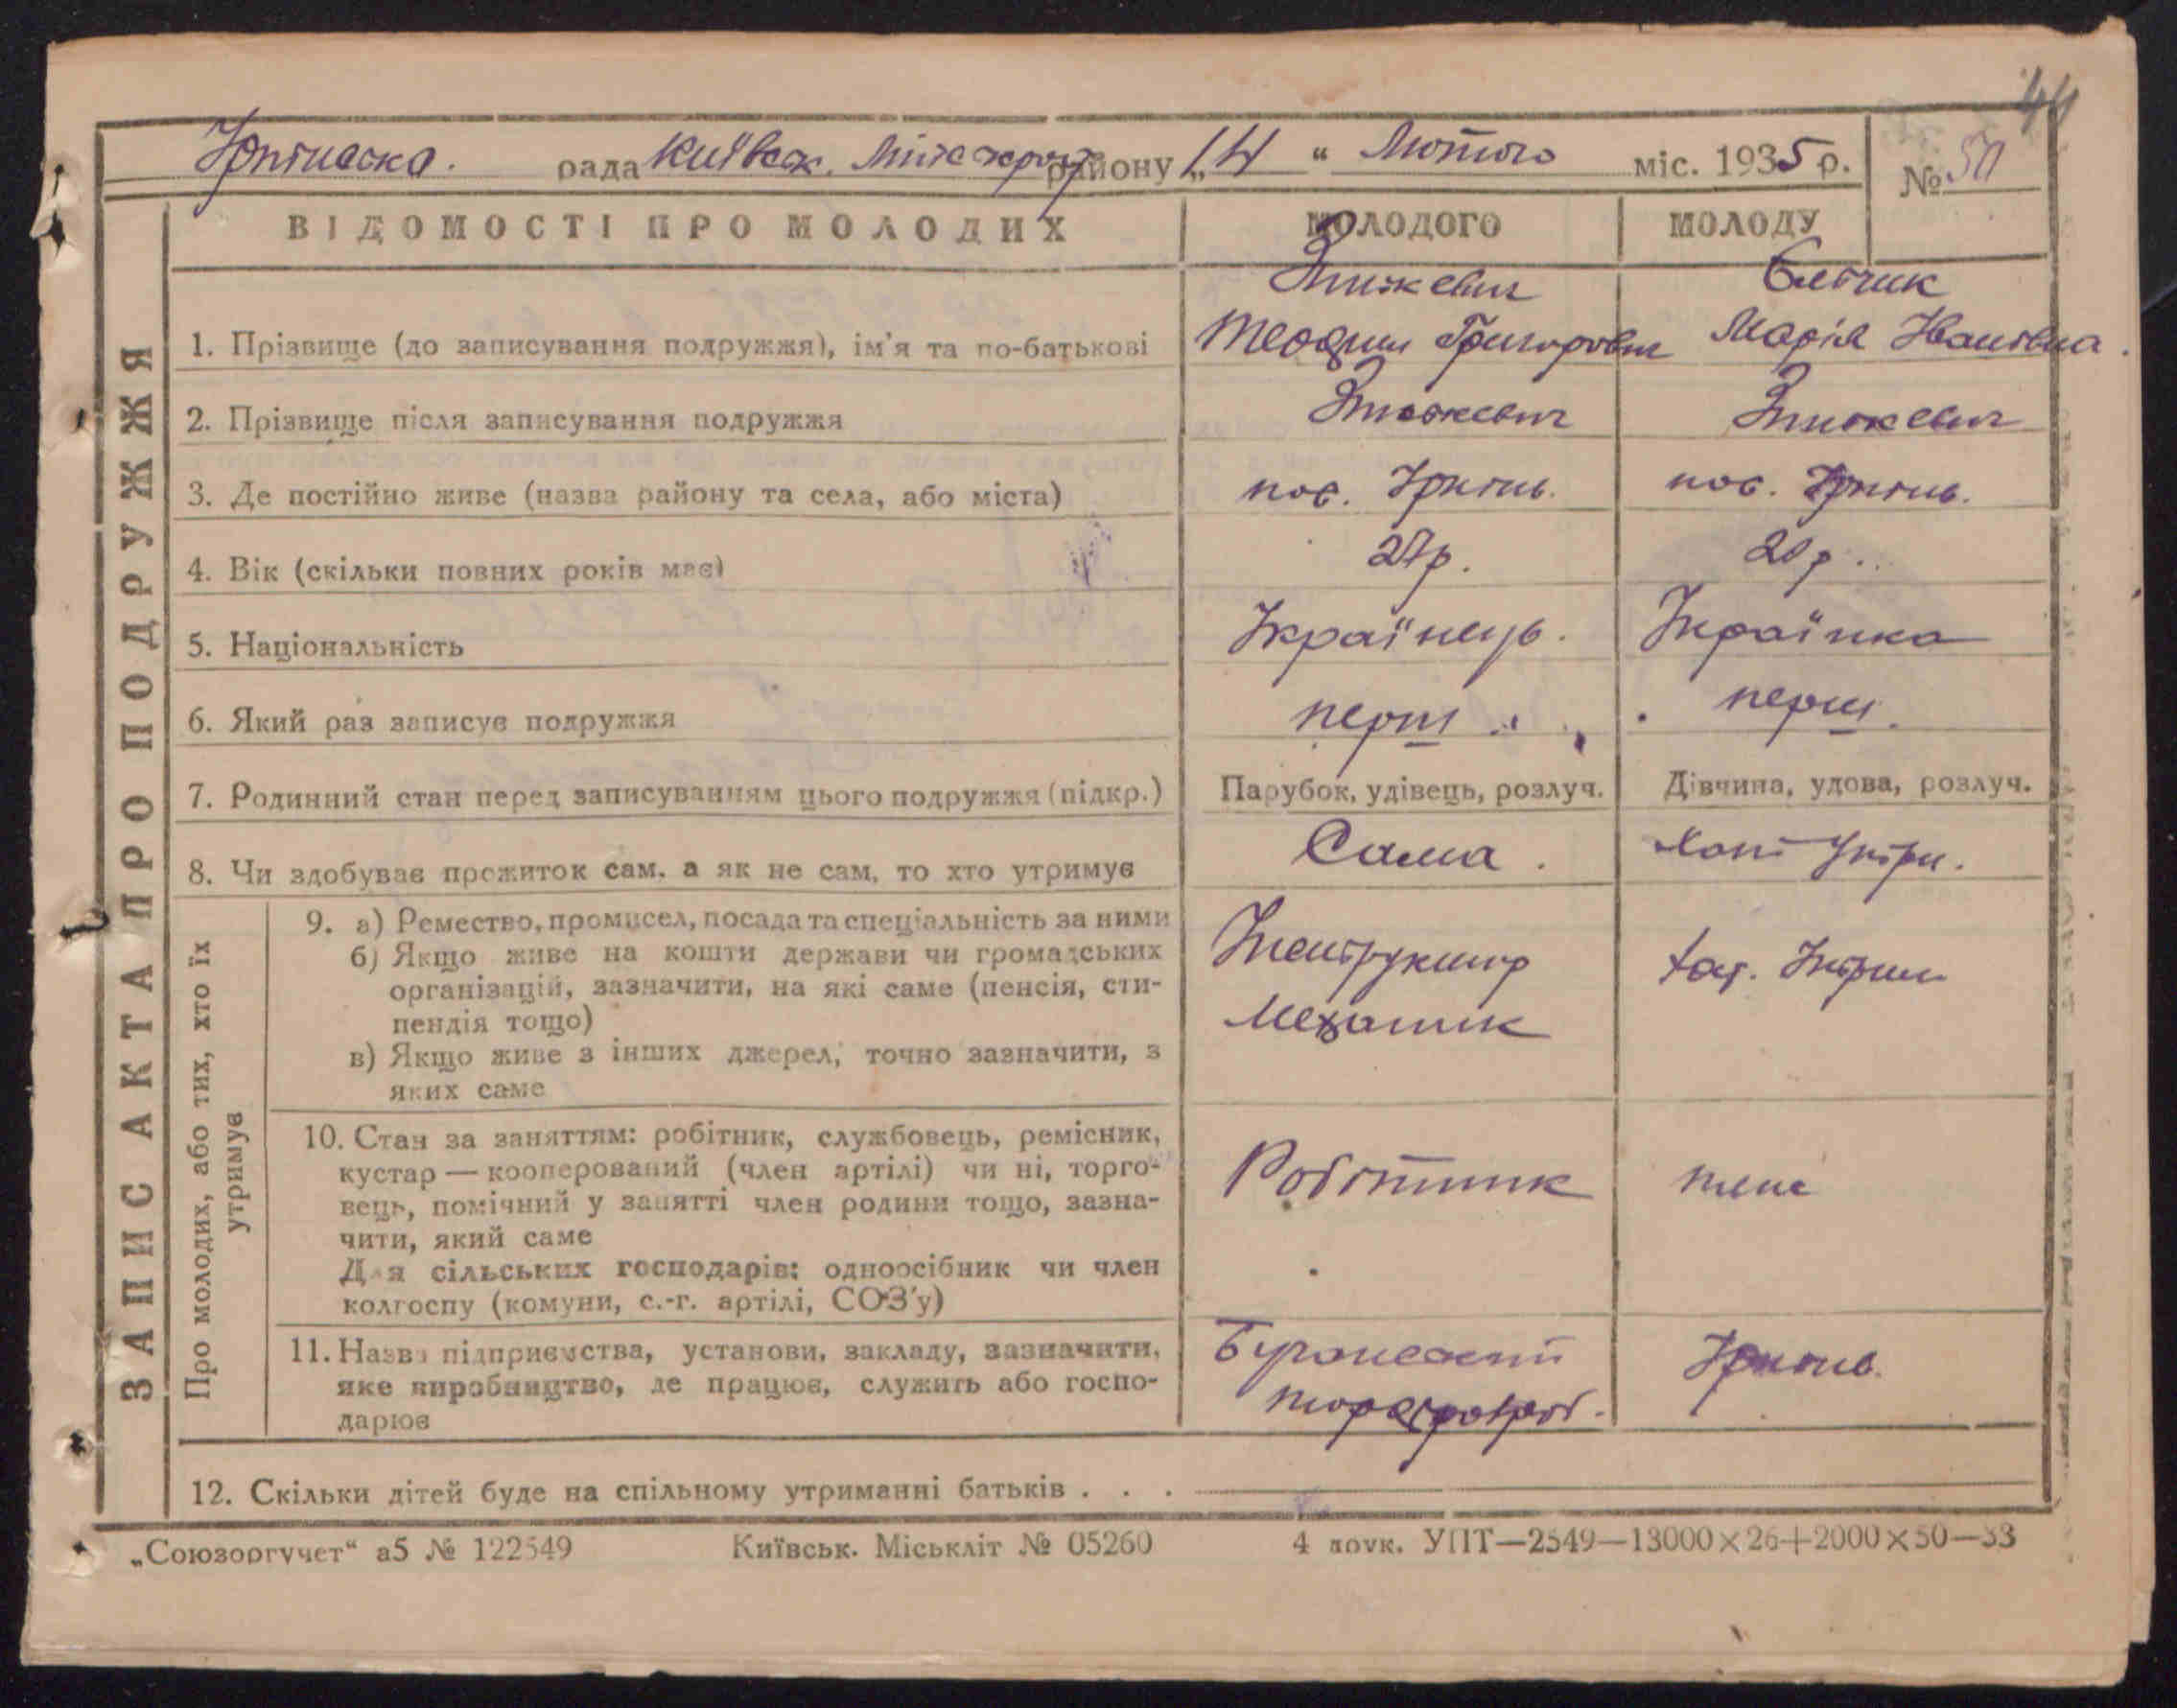 44
Ірпінська. рада Київськ. Міськ району "14" Лютого міс. 1935 р. № 50
ЗАПИС АКТА ПРО ПОДРУЖЖЯ
ВІДОМОСТІ ПРО МОЛОДИХ
МОЛОДОГО
МОЛОДУ
1. Прізвище (до записування подружжя), ім'я та по-батькові
Григорович
Марія Іванівна.
2. Прізвище після записування подружжя
3. Де постійно живе (назва району та села, або міста)
пос. Ірпінь.
пос. Ірпінь.
4. Вік (скільки повних років має)
27р.
20р.
5. Національність
Українець.
Українка
6. Який раз записує подружжя
перш
перш.
7. Родинний стан перед записуванням цього подружжя (підкр.)
Парубок, удівець, розлуч.
Дівчина, удова, розлуч.
8. Чи здобуває прожиток сам, а як не сам, то хто утримує
Сама.
Про молодих, або тих, хто їх
утримує
9. а) Ремество, промисел, посада та спеціальність за ними
б) Якщо живе на кошти держави чи громадських
організацій, зазначити, на які саме (пенсія, сти-
пендія тощо)
в) Якщо живе з інших джерел, точно зазначити, з
яких саме
Інструктор
Механик
10. Стан за заняттям: робітник, службовець, ремісник,
кустар — кооперований (член артілі) чи ні, торго-
вець, помічний у занятті член родини тощо, зазна-
чити, який саме
Для сільських господарів: одноосібник чи член
колгоспу (комуни, с.-г. артілі, СОЗ'у)
Робітник
11. Назва підприємства, установи, закладу, зазначити,
яке виробництво, де працює, служить або госпо-
дарює
Ірпінь.
12. Скільки дітей буде на спільному утриманні батьків . . .
„Союзоргучет" а5 № 122549
Київськ. Міськліт № 05260
4 друк. УПТ—2549—13000×26+2000×50—33